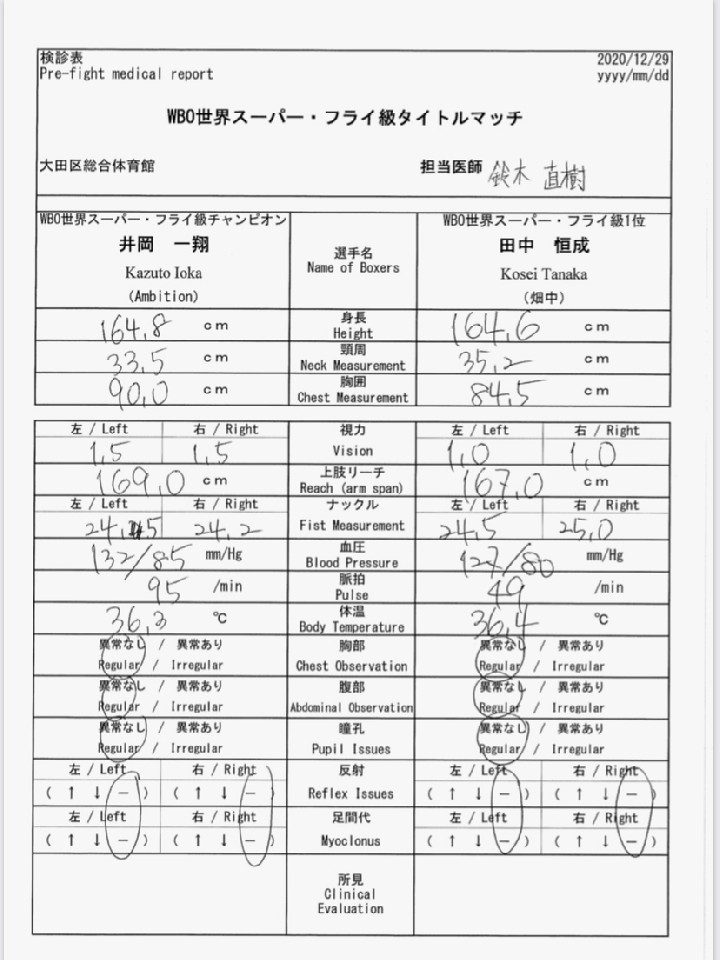 検診表 2020/12/29
Pre-fight medical report yyyy/mm/dd
WBO世界スーパー・フライ級タイトルマッチ
大田区総合体育館 担当医師 鈴木 直樹
WBO世界スーパー・フライ級チャンピオン WBO世界スーパー・フライ級1位
井岡 一翔 選手名 田中 恒成
Kazuto Ioka Name of Boxers Kosei Tanaka
(Ambition) (畑中)
164.8 cm 身長 Height 164.6 cm
33.5 cm 頸周 Neck Measurement 35.2 cm
90.0 cm 胸囲 Chest Measurement 84.5 cm
左 / Left 右 / Right 視力 左 / Left 右 / Right
1.5 1.5 Vision 1.0 1.0
169.0 cm 上肢リーチ Reach (arm span) 167.0 cm
左 / Left 右 / Right ナックル 左 / Left 右 / Right
24.5 24.2 Fist Measurement 24.5 25.0
132/85 mm/Hg 血圧 Blood Pressure 127/80 mm/Hg
95 /min 脈拍 Pulse 49 /min
36.3 ℃ 体温 Body Temperature 36.4 ℃
異常なし / 異常あり 胸部 異常なし / 異常あり
Regular / Irregular Chest Observation Regular / Irregular
異常なし / 異常あり 腹部 異常なし / 異常あり
Regular / Irregular Abdominal Observation Regular / Irregular
異常なし / 異常あり 瞳孔 異常なし / 異常あり
Regular / Irregular Pupil Issues Regular / Irregular
左 / Left 右 / Right 反射 左 / Left 右 / Right
( ↑ ↓ － ) ( ↑ ↓ － ) Reflex Issues ( ↑ ↓ － ) ( ↑ ↓ － )
左 / Left 右 / Right 足間代 左 / Left 右 / Right
( ↑ ↓ － ) ( ↑ ↓ － ) Myoclonus ( ↑ ↓ － ) ( ↑ ↓ － )
所見
Clinical
Evaluation